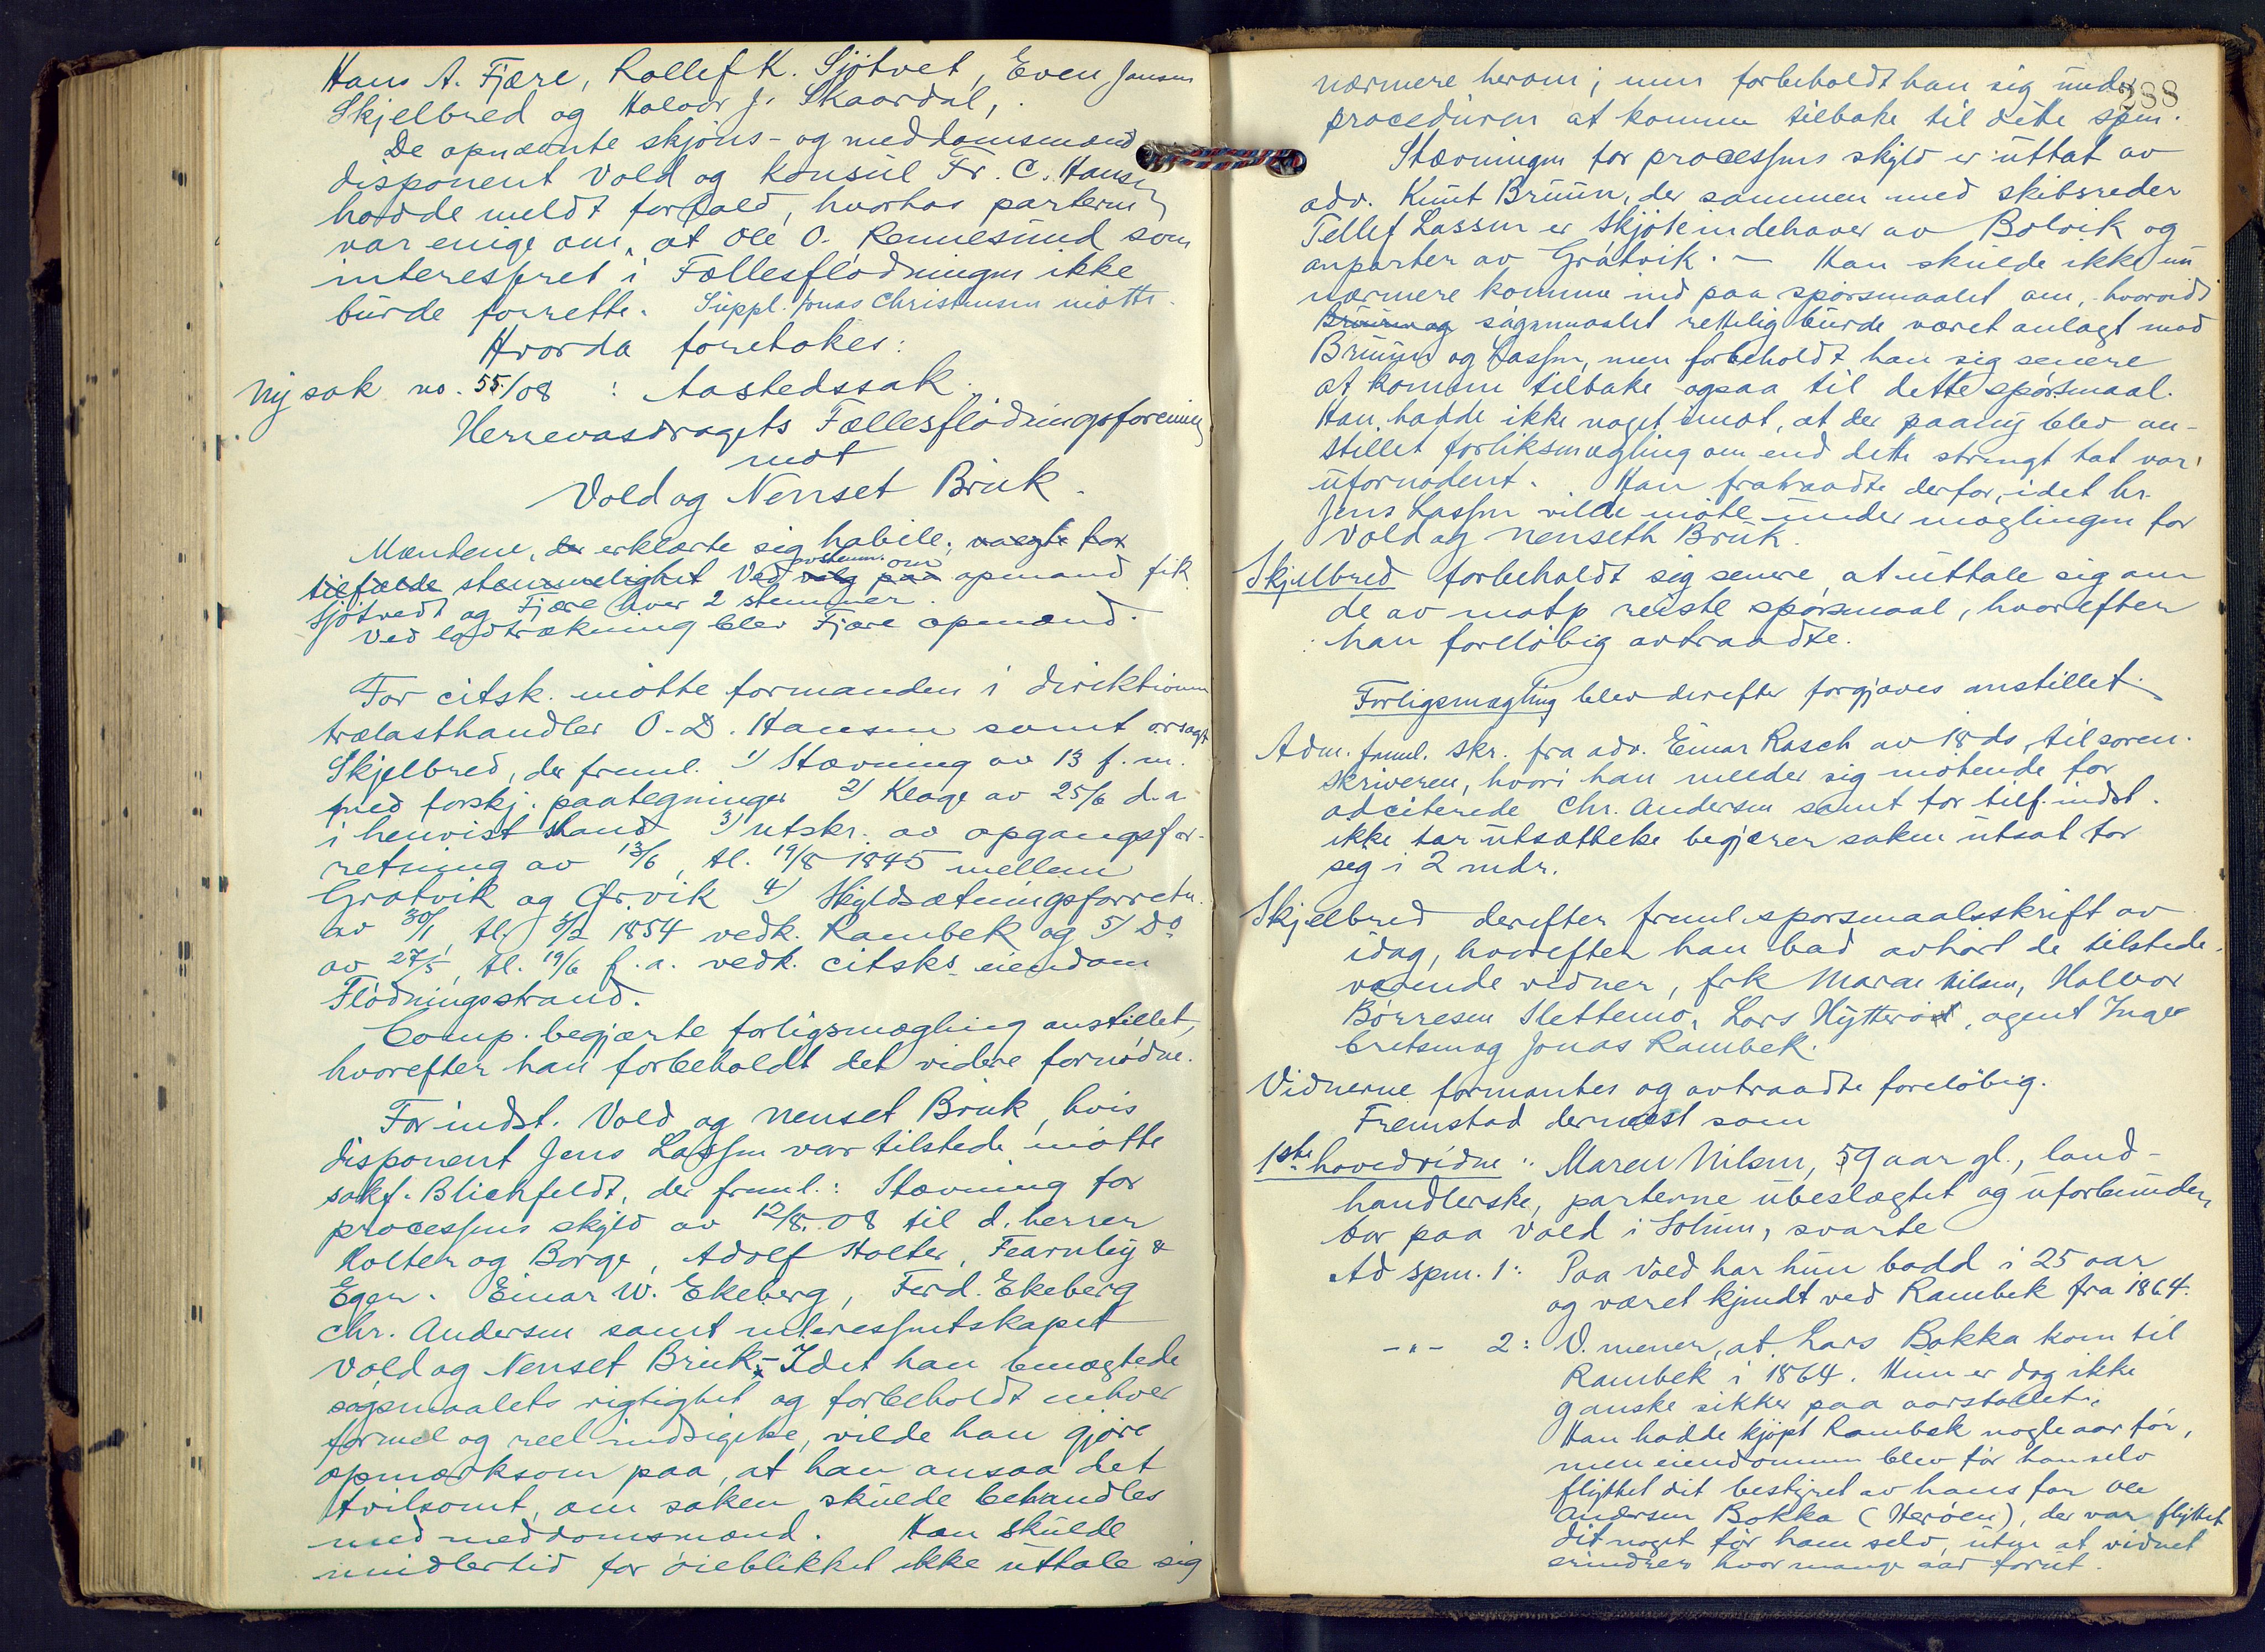 Hans A. Fjære, Rollef K. Sjötvet, Even Jansen
Skjelbred og Halvor J. Skaardal,
De opnævnte skjöns- og meddomsmænd
disponent Vold og konsul Fr. C. Hansen
hadde meldt forfald, hvorhos parterne
var enige om, at Ole O. Rennesund som
interesseret i Fællesflödningen ikke
burde forrette. Suppl. Jonas Christensen mötte.
Hvorda foretokes:
Ny sak no. 55/08 : Aastedssak.
Herrevasdragets Fællesflödningsforening
mot
Vold og Nenset Bruk.
Mændene, der erklærte sig habile; valgte for
tilfælde stemmelighet Ved valg paa avstemn. om opmand fik
Sjötvedt og Fjære hver 2 stemmer.
Ved lodtrækning blev Fjære opmand.
For citsk. mötte formanden i direktionen
trælasthandler O. D. Hansen samt o.r.sagf.
Skjelbred, der freml. 1) Stævning av 13 f. m.
med forskj. paategninger 2) Klage av 25/6 d. a
i henvist stand 3) utskr. av opgangsfor-
retning av 13/6, tl. 19/8 1845 mellem
Gratvik og Örvik 4) Skyldsætningsforretn.
av 30/1, tl. 3/2 1854 vedk. Rambek og 5) Do
av 27/5, tl. 19/6 f. a. vedk. citsks eiendom
Flödningsstrand.
Comp. begjærte forligsmægling anstillet,
hvorefter han forbeholdt det videre fornödne.
For indst. Vold og Nenset Bruk, hvis
disponent Jens Lassen var tilstede mötte
sakf. Blichfeldt, der freml.: Stævning for
processens skyld av 12/8.08 til d. herrer
Holter og Borge, Adolf Holter, Fearnley &
Eger. Einar W. Ekeberg, Ferd. Ekeberg
Chr. Andersen samt interessentskapet
Vold og Nenset Bruk. - Idet han benægtede
sögsmaalets rigtighet og forbeholdt enhver
formel og reel indsigelse, vilde han gjöre
opmærksom paa, at han ansaa det
tvilsomt, om saken skulde behandles
med meddomsmænd. Han skulde
imidlertid for öieblikket ikke uttale sig
288
nærmere herom; men forbeholdt han sig under
proceduren at komme tilbake til dette spm.
Stævningen for processens skyld er uttat av
adv. Knut Bruun, der sammen med skibsreder
Tellef Lassen er skjöteindehaver av Bolvik og
anparter av Gratvik. - Han skulde ikke nu
nærmere komme ind paa spörsmaalet om, hvorvidt
Bruun og sögsmaalet rettelig burde været anlagt mod
Bruun og Lassen, men forbeholdt han sig senere
at komme tilbake ogsaa til dette spörsmaal.
Han hadde ikke noget imot, at der paany blev an-
stillet forliksmægling om end dette strengt tat var
ufornödent. Han fratraadte derfor, idet hr.
Jens Lassen vilde möte under mæglingen for
Vold og Nenseth Bruk.
Skjelbred forbeholdt sig senere at uttale sig om
de av motp reiste spörsmaal, hvorefter
han forelöbig avtraadte.
Forligsmægling blev derefter forgjæves anstillet.
Adm. freml. skr. fra adv. Einar Rasch av 18 ds, til soren-
skriveren, hvori han melder sig mötende for
adciterede Chr. Andersen samt for tilf. indst.
ikke tar utsættelse begjærer saken utsat for
seg i 2 mdr.
Skjelbred derefter freml. sporsmaalsskrift av
idag, hvorefter han bad avhört de tilstede-
værende vidner, frk Maren Nilsen, Halvor
Börresen Slettemo, Lars Hytterö, agent Inge-
bretsen og Jonas Rambek.
Vidnerne formantes og avtraadte forelöbig.
Fremstod dernæst som
1ste hovedvidne: Maren Nilsen, 59 aar gl., land-
handlerske, parterne ubeslægtet og uforbunden,
bor paa Vold i Solum, svarte
Ad spm. 1: Paa Vold har hun bodd i 25 aar
og været kjendt ved Rambek fra 1864.
-"- 2: V. mener, at Lars Bokka kom til
Rambek i 1864. Hun er dog ikke
ganske sikker paa aarstallet.
Han hadde kjöpt Rambek nogle aar för,
men eiendommen blev för han selv
flyttet dit bestyret av hans far Ole
Andersen Bokka (Heröen), der var flyttet
dit noget för ham selv, uten at vidnet
erindrer hvor mange aar forut.